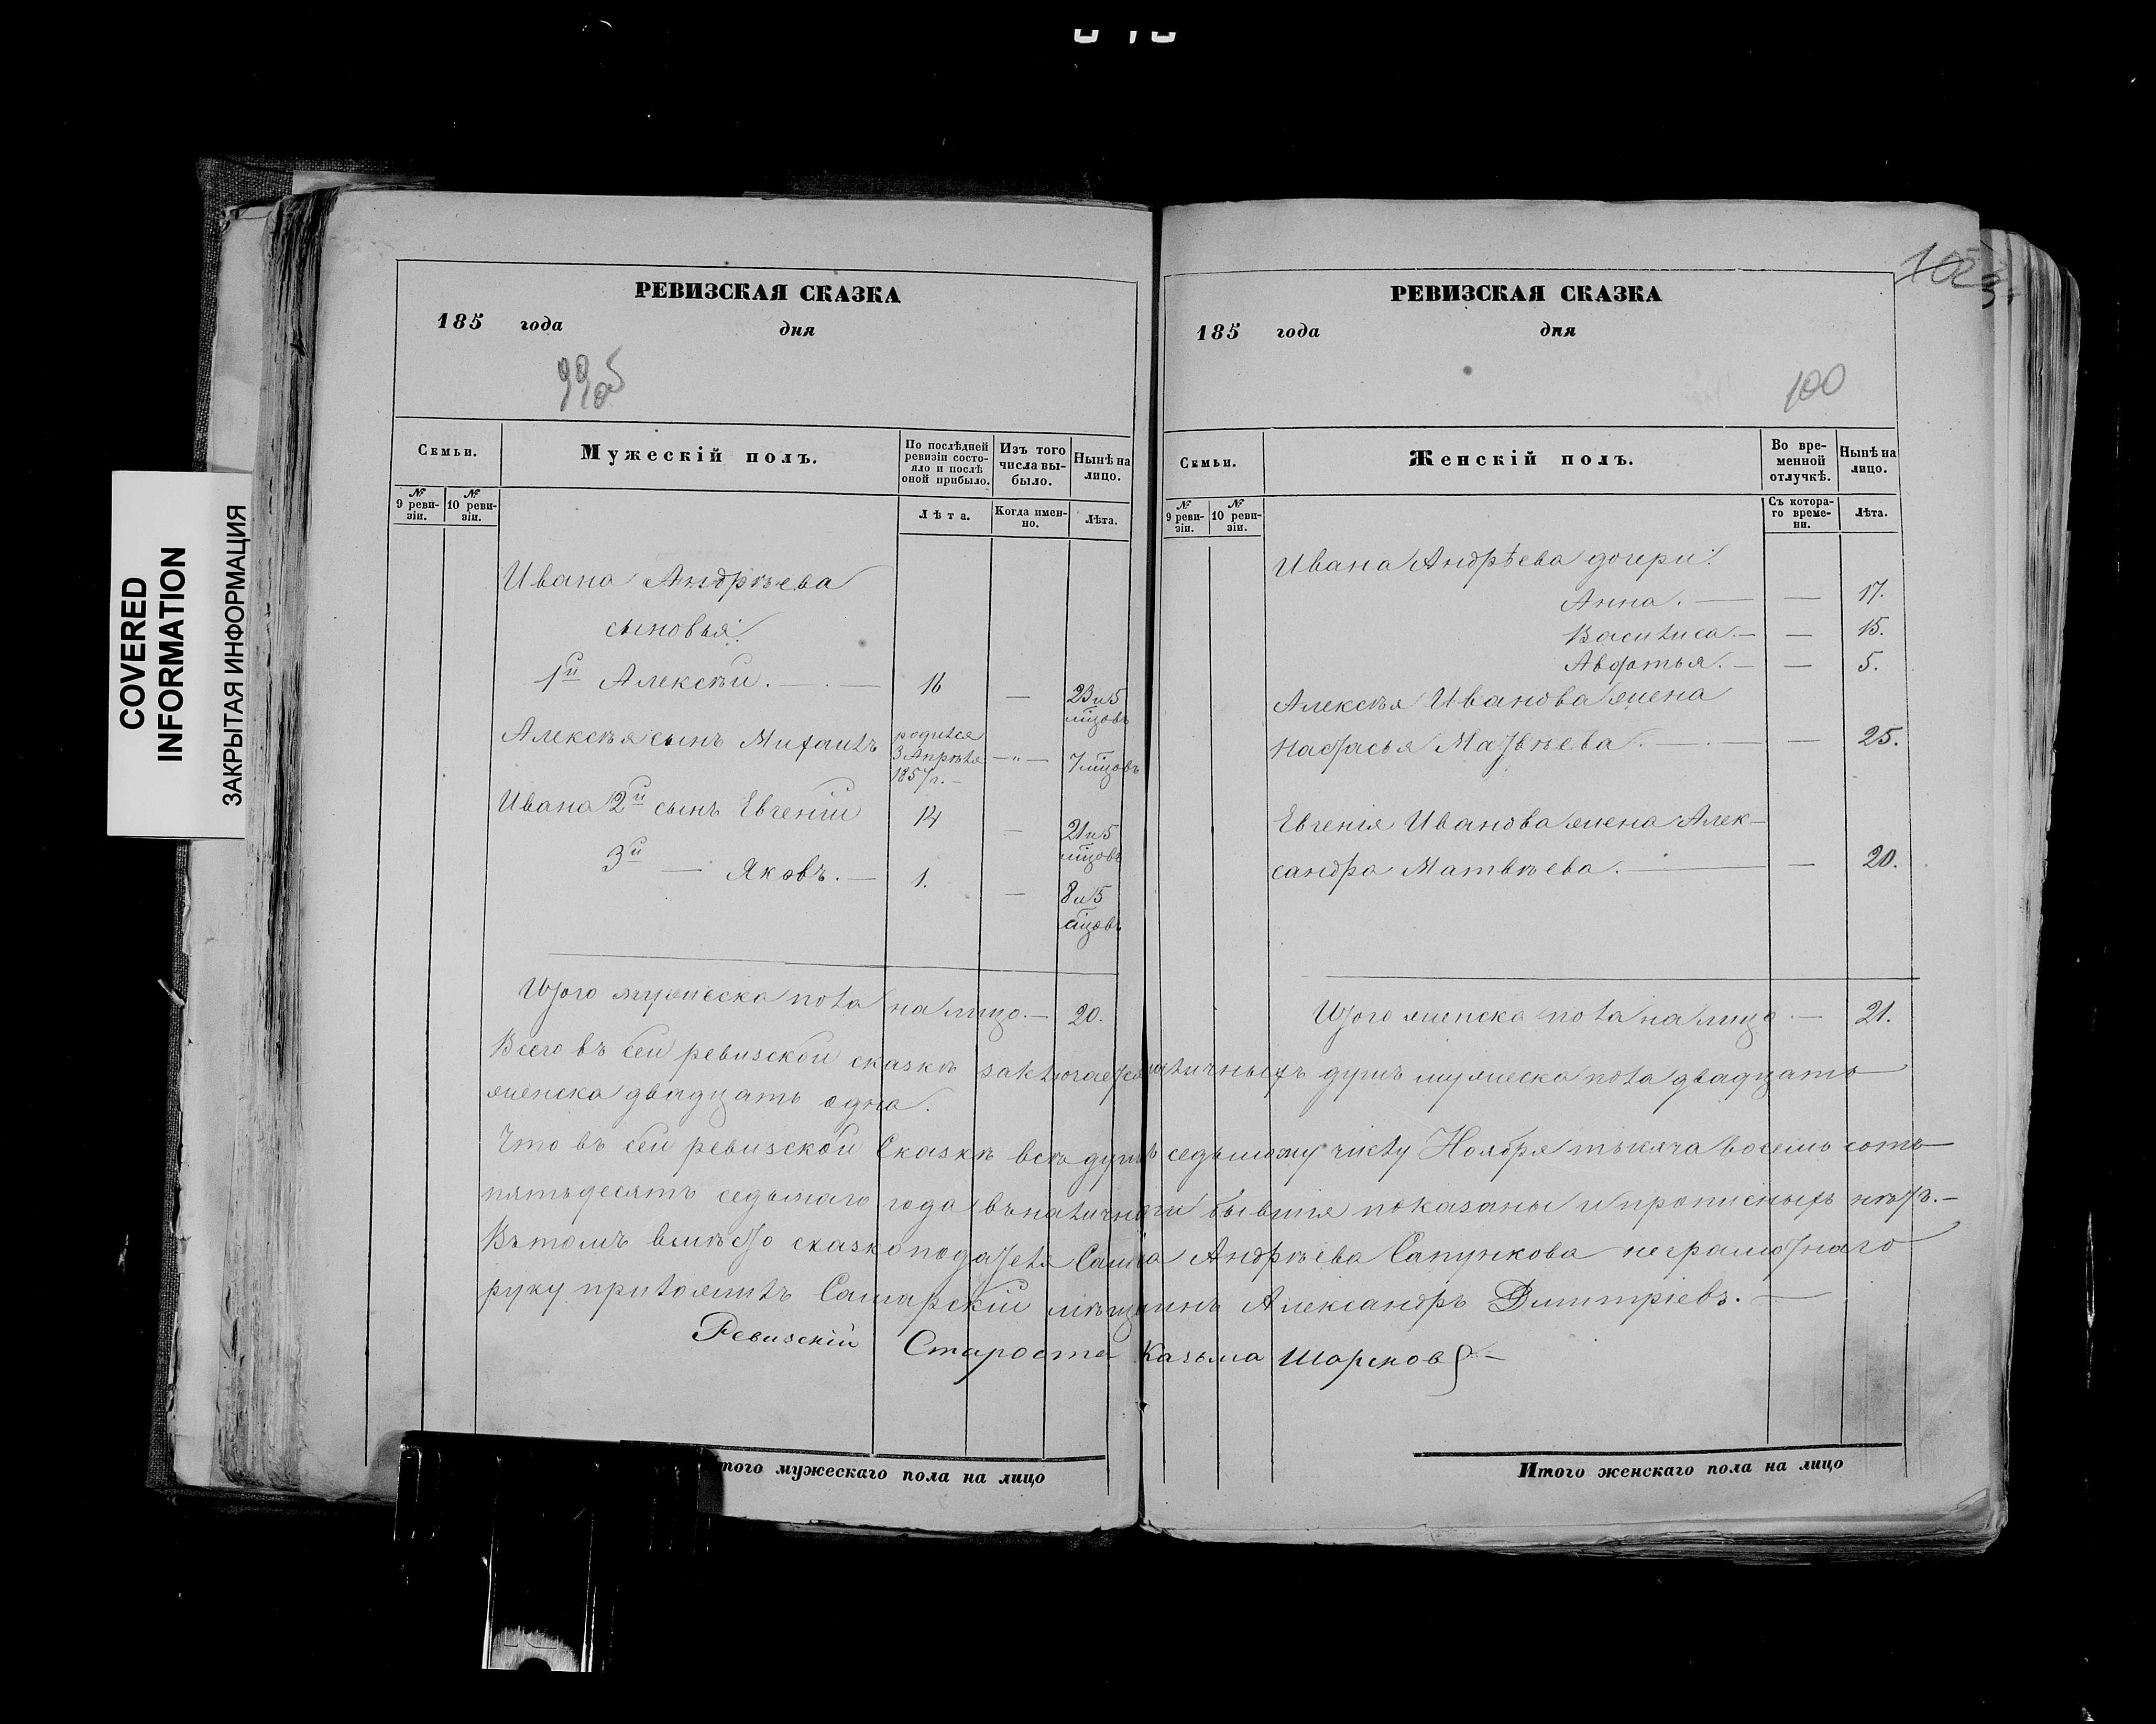 COVERED
INFORMATION
ЗАКРЫТАЯ ИНФОРМАЦИЯ
РЕВИЗСКАЯ СКАЗКА
185 года дня
99об
Семьи.
Мужескій полъ.
По послѣдней ревизіи состояло и послѣ оной прибыло.
Изъ того числа выбыло.
Нынѣ на лицо.
№ 9 ревизіи.
№ 10 ревизіи.
Лѣта.
Когда именно.
Лѣта.
Ивана Андрѣева
сыновья:
1й Алексѣй. — 16 — 23 и 5 мцовъ
Алексѣя сынъ Михаилъ родился 3 Апрѣля 1857 г. — " — 7 мцовъ
Ивана 2й сынъ Евгеній 14 — 21 и 5 мцовъ
3й — Яковъ. — 1. — 8 и 5 мцовъ
Итого мужеска пола на лицо. — 20.
РЕВИЗСКАЯ СКАЗКА
185 года дня
100
Семьи.
Женскій полъ.
Во временной отлучкѣ.
Нынѣ на лицо.
№ 9 ревизіи.
№ 10 ревизіи.
Съ котораго времени.
Лѣта.
Ивана Андрѣева дочери:
Анна. — — 17.
Василиса. — — 15.
Авдотья. — — 5.
Алексѣя Иванова жена
Настасья Матвѣева. — — 25.
Евгенія Иванова жена Алек-
сандра Матвѣева. — — 20.
Итого женска пола на лицо — 21.
Всего въ сей ревизской сказкѣ заключается наличныхъ душъ мужеска пола двадцать
женска двадцать одна.
Что въ сей ревизской Сказкѣ всѣ души къ седьмому числу Ноября тысяча восемь сотъ
пятьдесятъ седьмаго года въ наличности бывшія показаны и прописныхъ нѣтъ. —
Въ томъ вмѣсто сказкоподателя Андрѣева Сапункова неграмотнаго
руку приложилъ Самарскій мѣщанинъ Александръ Дмитріевъ. —
Ревизскій Староста Казьма
того мужескаго пола на лицо
Итого женскаго пола на лицо